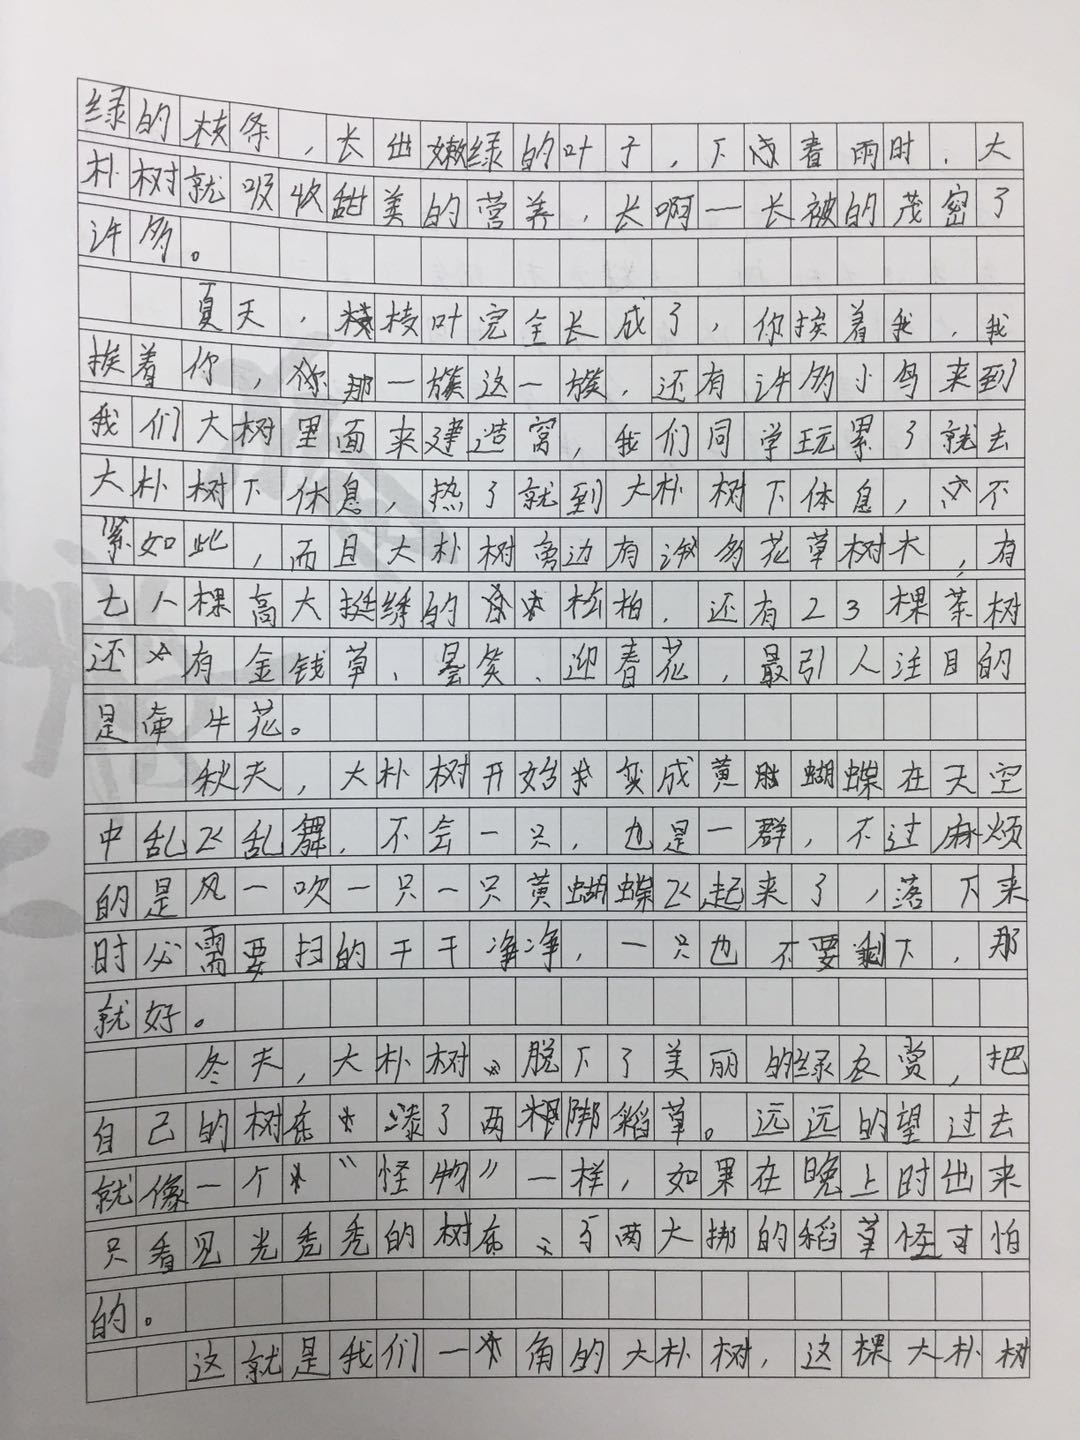 绿的枝条，长出嫩绿的叶子，下春雨时，大
朴树就吸收甜美的营养，长啊一长被的茂密了
许多。
夏天，枝叶完全长成了，你挨着我，我
挨着你，那一簇这一簇，还有许多小鸟来到
我们大树里面来建造窝，我们同学玩累了就去
大朴树下休息，热了就到大朴树下体息，不
紧如此，而且大朴树旁边有许多花草树木，有
七八棵高大挺的松柏，还有23棵茶树
还有金钱草、昙笑、迎春花，最引人注目的
是牵牛花。
秋天，大朴树开始变成黄蝴蝶在天空
中乱飞乱舞，不会一只，也是一群，不过麻烦
的是风一吹一只一只黄蝴蝶飞起来了，落下来
时必需要扫的干干净净，一只也不要剩下，那
就好。
冬天，大朴树脱下了美丽的绿衣赏，把
自己的树了两稻草。远远的望过去
就像一个“怪物”一样，如果在晚上时出来
只看见光秃秃的树两大绑的稻草怪可怕
的。
这就是我们一角的大朴树，这棵大朴树